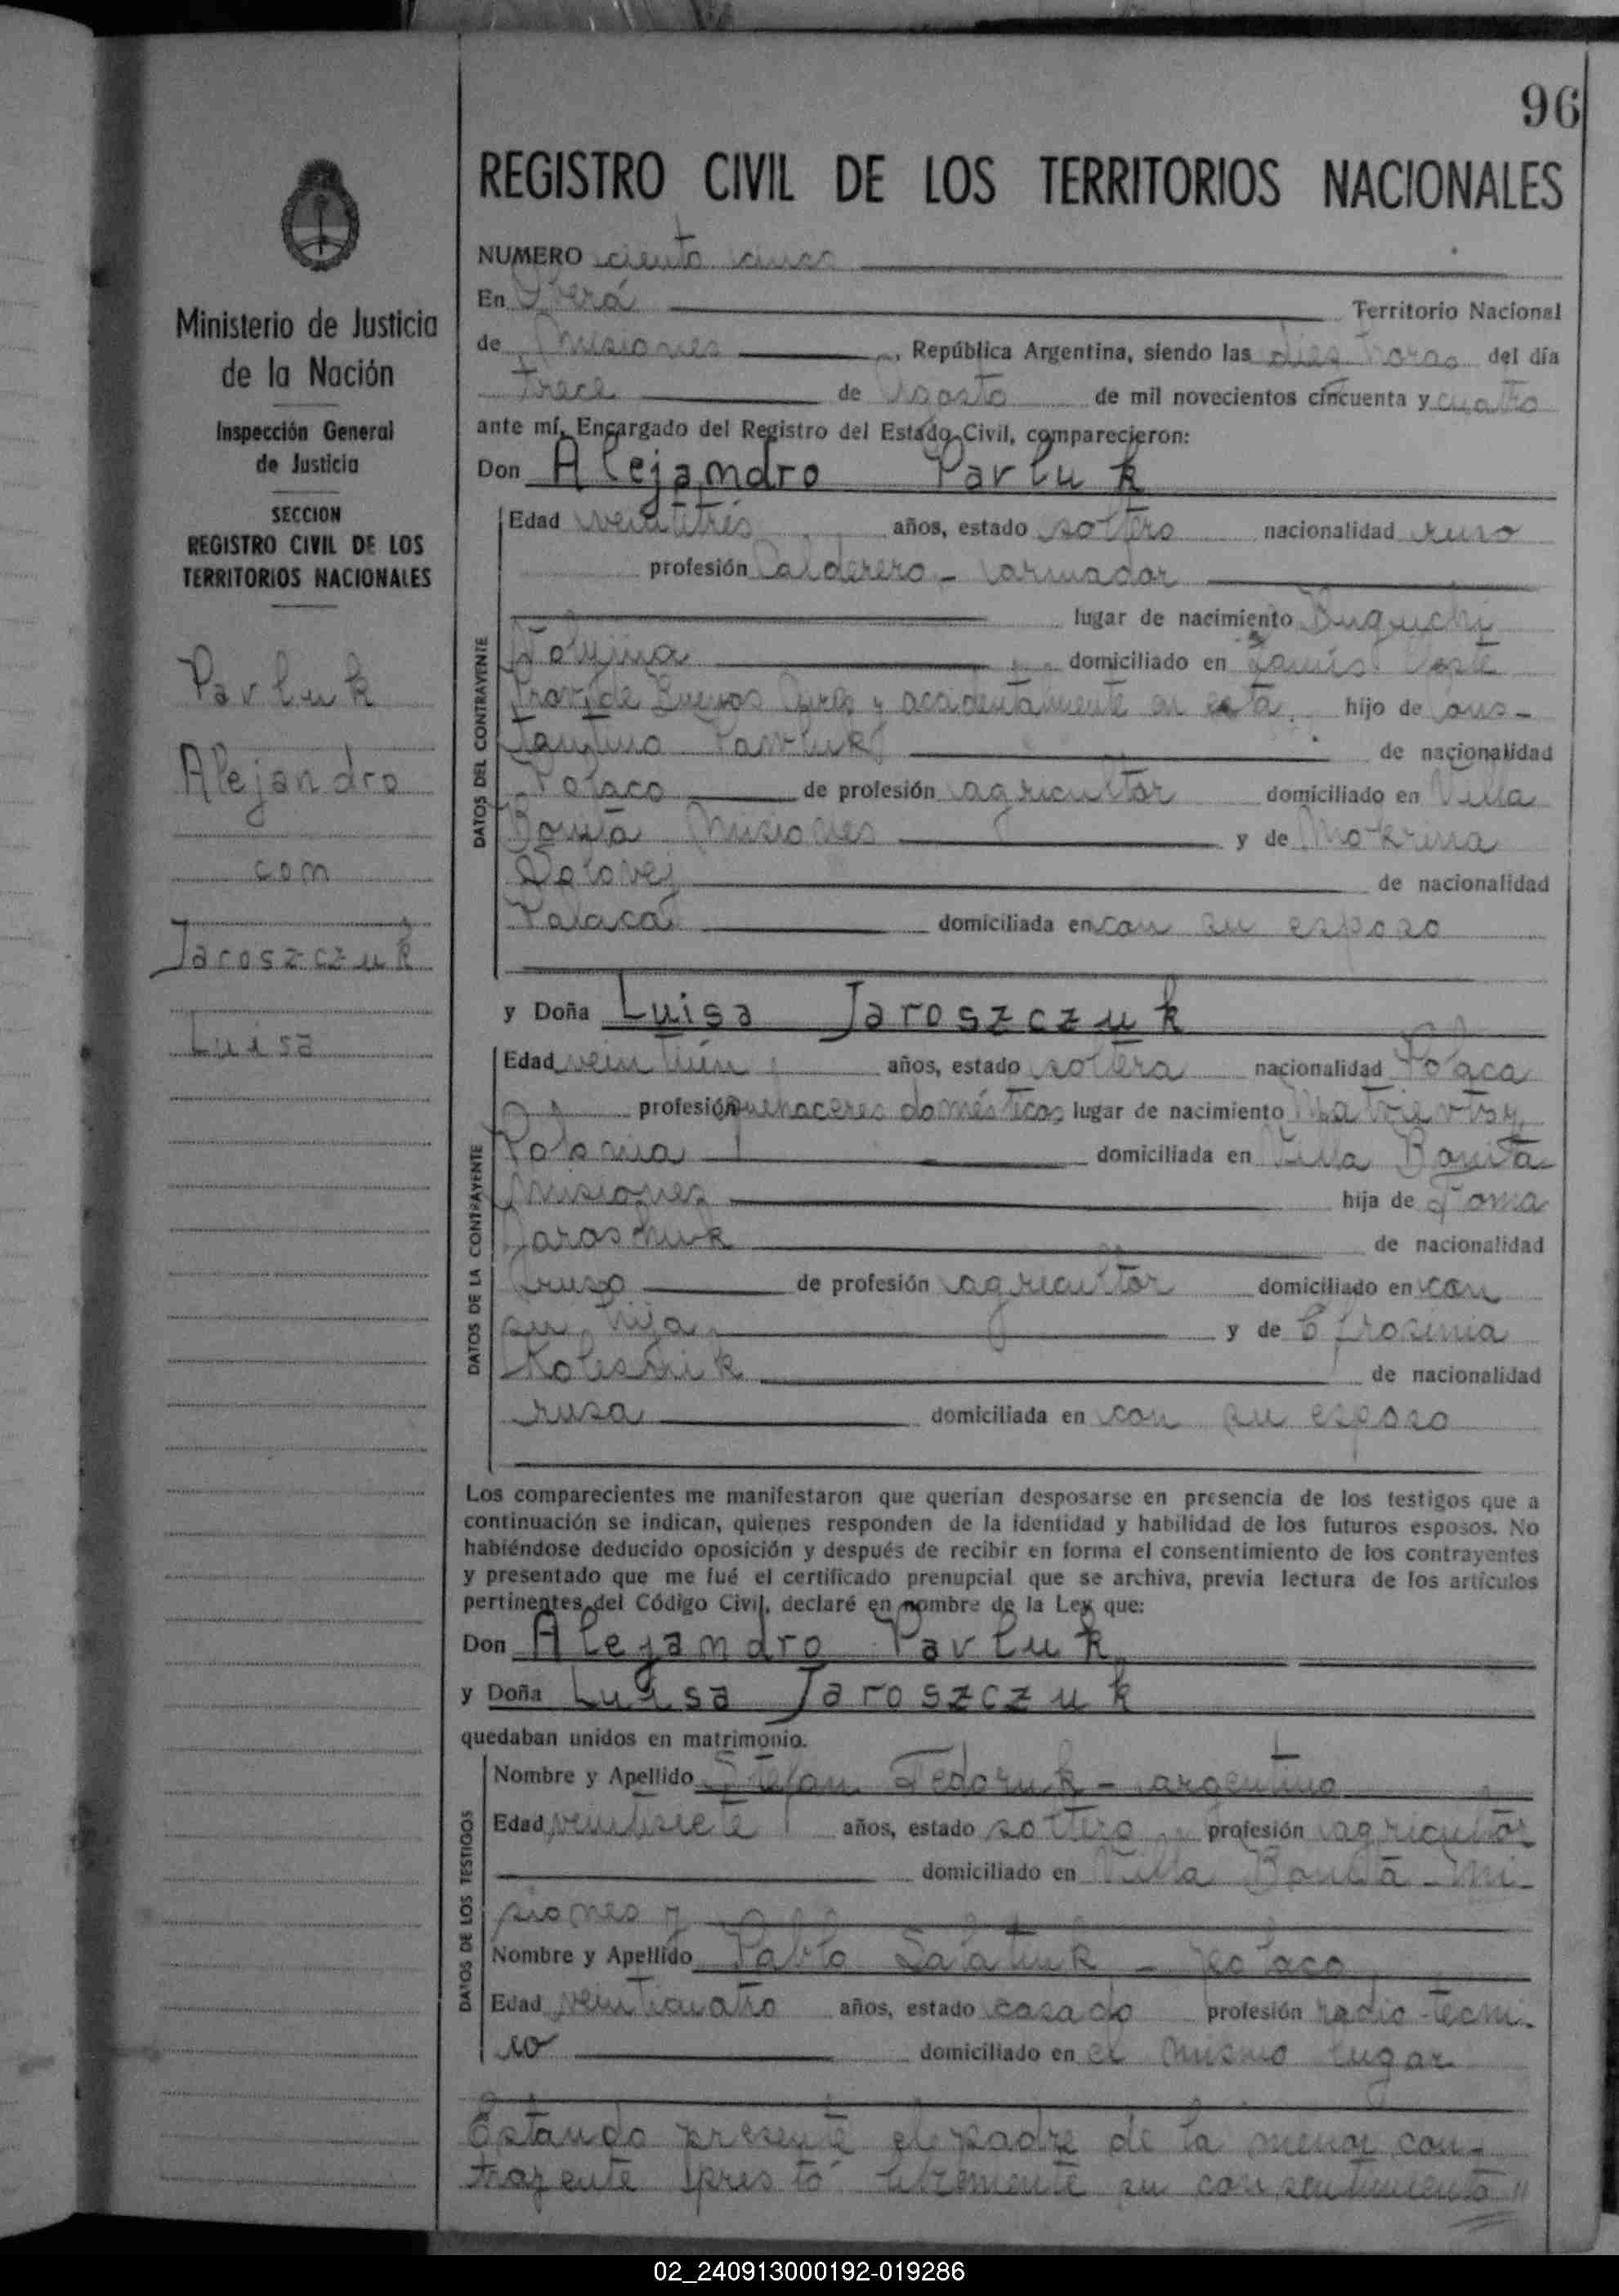 96
REGISTRO CIVIL DE LOS TERRITORIOS NACIONALES
Ministerio de Justicia
de la Nación
Inspección General
de Justicia
SECCION
REGISTRO CIVIL DE LOS
TERRITORIOS NACIONALES
Pavluk
Alejandro
con
Jaroszczuk
Luisa
NUMERO ciento cinco
En Oberá Territorio Nacional
de Misiones, República Argentina, siendo las diez horas del día
trece de Agosto de mil novecientos cincuenta y cuatro
ante mí, Encargado del Registro del Estado Civil, comparecieron:
Don Alejandro Pavluk
DATOS DEL CONTRAYENTE
Edad veintitrés años, estado soltero nacionalidad ruso
profesión Calderero - armador
lugar de nacimiento
domiciliado en Oeste
Prov. de Buenos Aires y accidentalmente en esta. hijo de Cons-
tantino Pawluk de nacionalidad
Polaco de profesión agricultor domiciliado en Villa
Bonita Misiones y de Mokrina
de nacionalidad
Polaca domiciliada en con su esposo
y Doña Luisa Jaroszczuk
DATOS DE LA CONTRAYENTE
Edad veintiún años, estado soltera nacionalidad Polaca
profesión quehaceres domésticos lugar de nacimiento
Polonia domiciliada en Villa Bonita
Misiones hija de Toma
Jaroschuk de nacionalidad
ruso de profesión agricultor domiciliado en con
su hija y de Efrosinia
de nacionalidad
rusa domiciliada en con su esposo
Los comparecientes me manifestaron que querían desposarse en presencia de los testigos que a
continuación se indican, quienes responden de la identidad y habilidad de los futuros esposos. No
habiéndose deducido oposición y después de recibir en forma el consentimiento de los contrayentes
y presentado que me fué el certificado prenupcial que se archiva, previa lectura de los artículos
pertinentes del Código Civil, declaré en nombre de la Ley que:
Don Alejandro Pavluk
y Doña Luisa Jaroszczuk
quedaban unidos en matrimonio.
DATOS DE LOS TESTIGOS
Nombre y Apellido Stefan Fedoruk - argentino
Edad veintisiete años, estado soltero profesión agricultor
domiciliado en Villa Bonita - Mi-
siones y
Nombre y Apellido Pablo - polaco
Edad veinticuatro años, estado casado profesión radio-técni-
co domiciliado en el mismo lugar
Estando presente el padre de la menor con-
trayente prestó libremente su consentimiento"
02_240913000192-019286